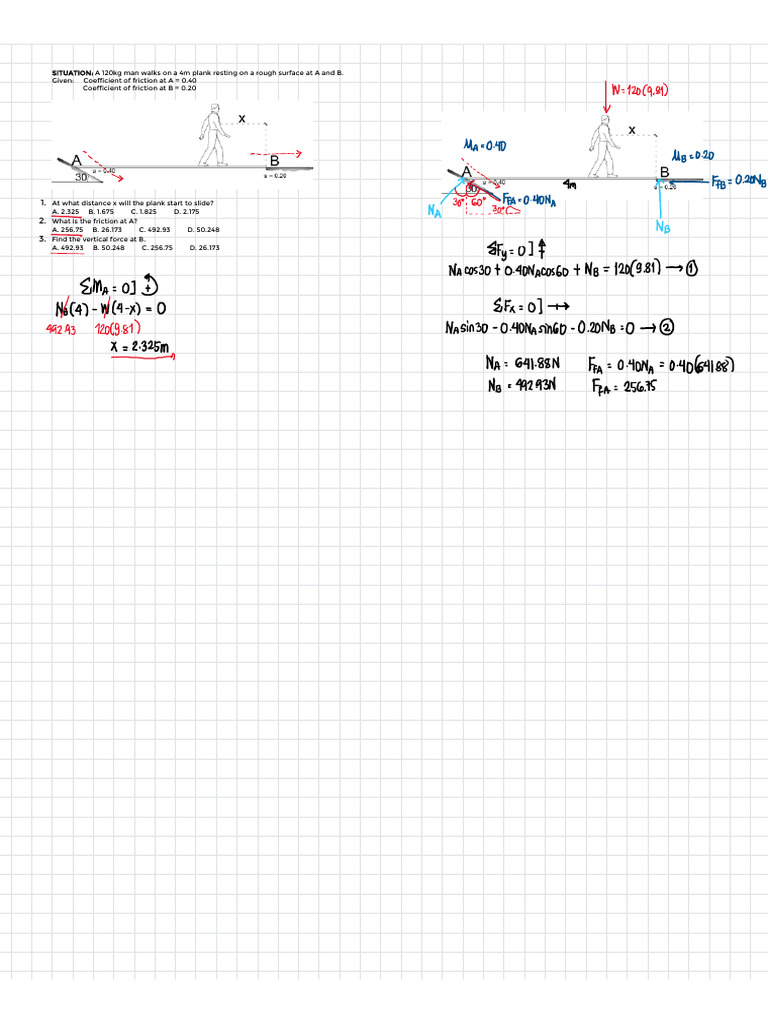 SITUATION: A 120kg man walks on a 4m plank resting on a rough surface at A and B.
Given: Coefficient of friction at A = 0.40
Coefficient of friction at B = 0.20
x
A
B
u = 0.40
30
u = 0.20
1. At what distance x will the plank start to slide?
A. 2.325 B. 1.675 C. 1.825 D. 2.175
2. What is the friction at A?
A. 256.75 B. 26.173 C. 492.93 D. 50.248
3. Find the vertical force at B.
A. 492.93 B. 50.248 C. 256.75 D. 26.173
ΣM_A = 0] +
N_B(4) - W(4-x) = 0
492.93 120(9.81)
x = 2.325m
W = 120(9.81)
x
μ_A = 0.40
μ_B = 0.20
A
B
u = 0.40
30
4m
u = 0.20
F_fB = 0.20N_B
F_fA = 0.40N_A
30° 60°
30°
N_A
N_B
ΣFy = 0] +
N_A cos30 + 0.40N_A cos60 + N_B = 120(9.81) → ①
ΣFx = 0] +→
N_A sin30 - 0.40N_A sin60 - 0.20N_B = 0 → ②
N_A = 641.88N F_fA = 0.40N_A = 0.40(641.88)
N_B = 492.93N F_fA = 256.75